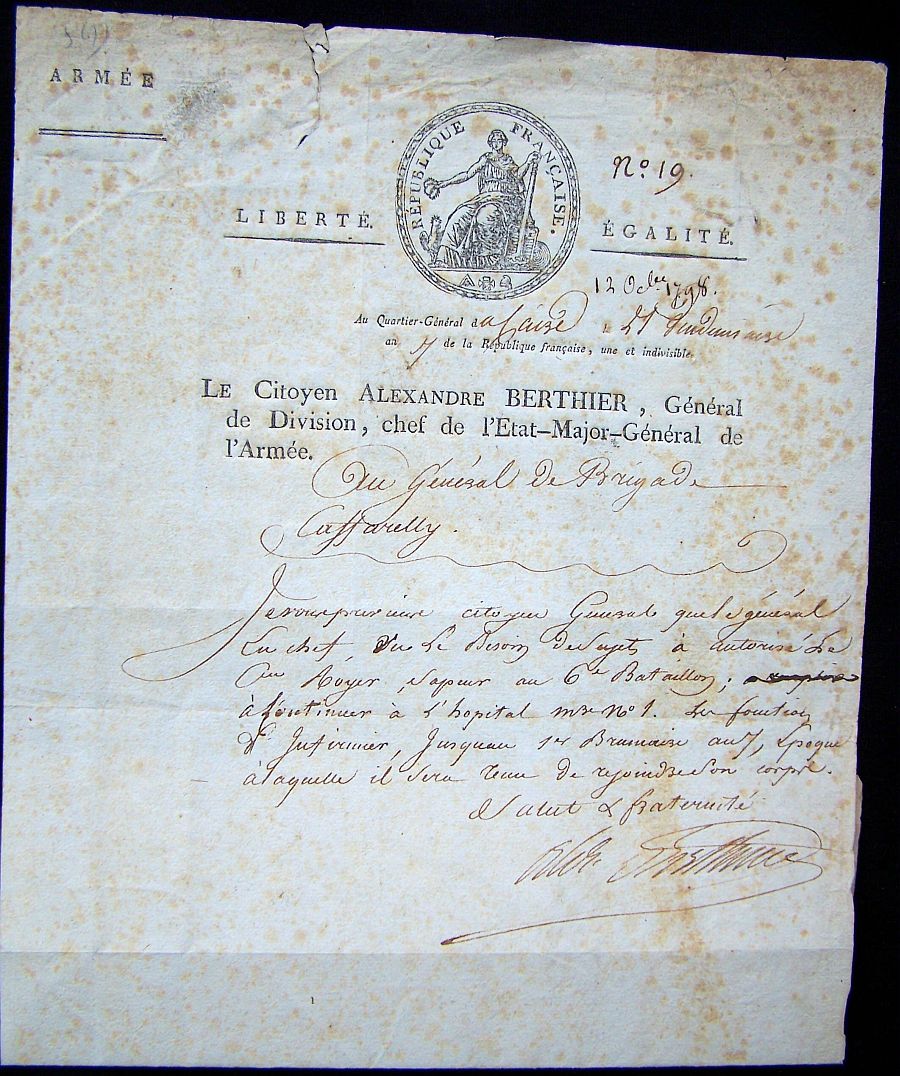 ARMÉE
RÉPUBLIQUE FRANÇAISE.
No. 19.
LIBERTÉ.
ÉGALITÉ.
12 Octbre 1798.
Au Quartier-Général du Caire le 21 Vendemiaire
an 7 de la République française, une et indivisible.
LE Citoyen ALEXANDRE BERTHIER, Général
de Division, chef de l'Etat-Major-Général de
l'Armée.
Au Général de Brigade
Caffarelly.
Je vous préviens citoyen Général que le général
En chef, vu Le Besoin de Sujets à autorisé Le
Cen Royer, Sapeur au 6e Bataillon;
à Continuer à L'hopital mre No 1. Les fonctions
d'Infirmier, Jusqueau 1er Brumaire an 7, Epoque
à laquelle il Sera tenu de rejoindre Son corps.
Salut & fraternité
Alex Berthier